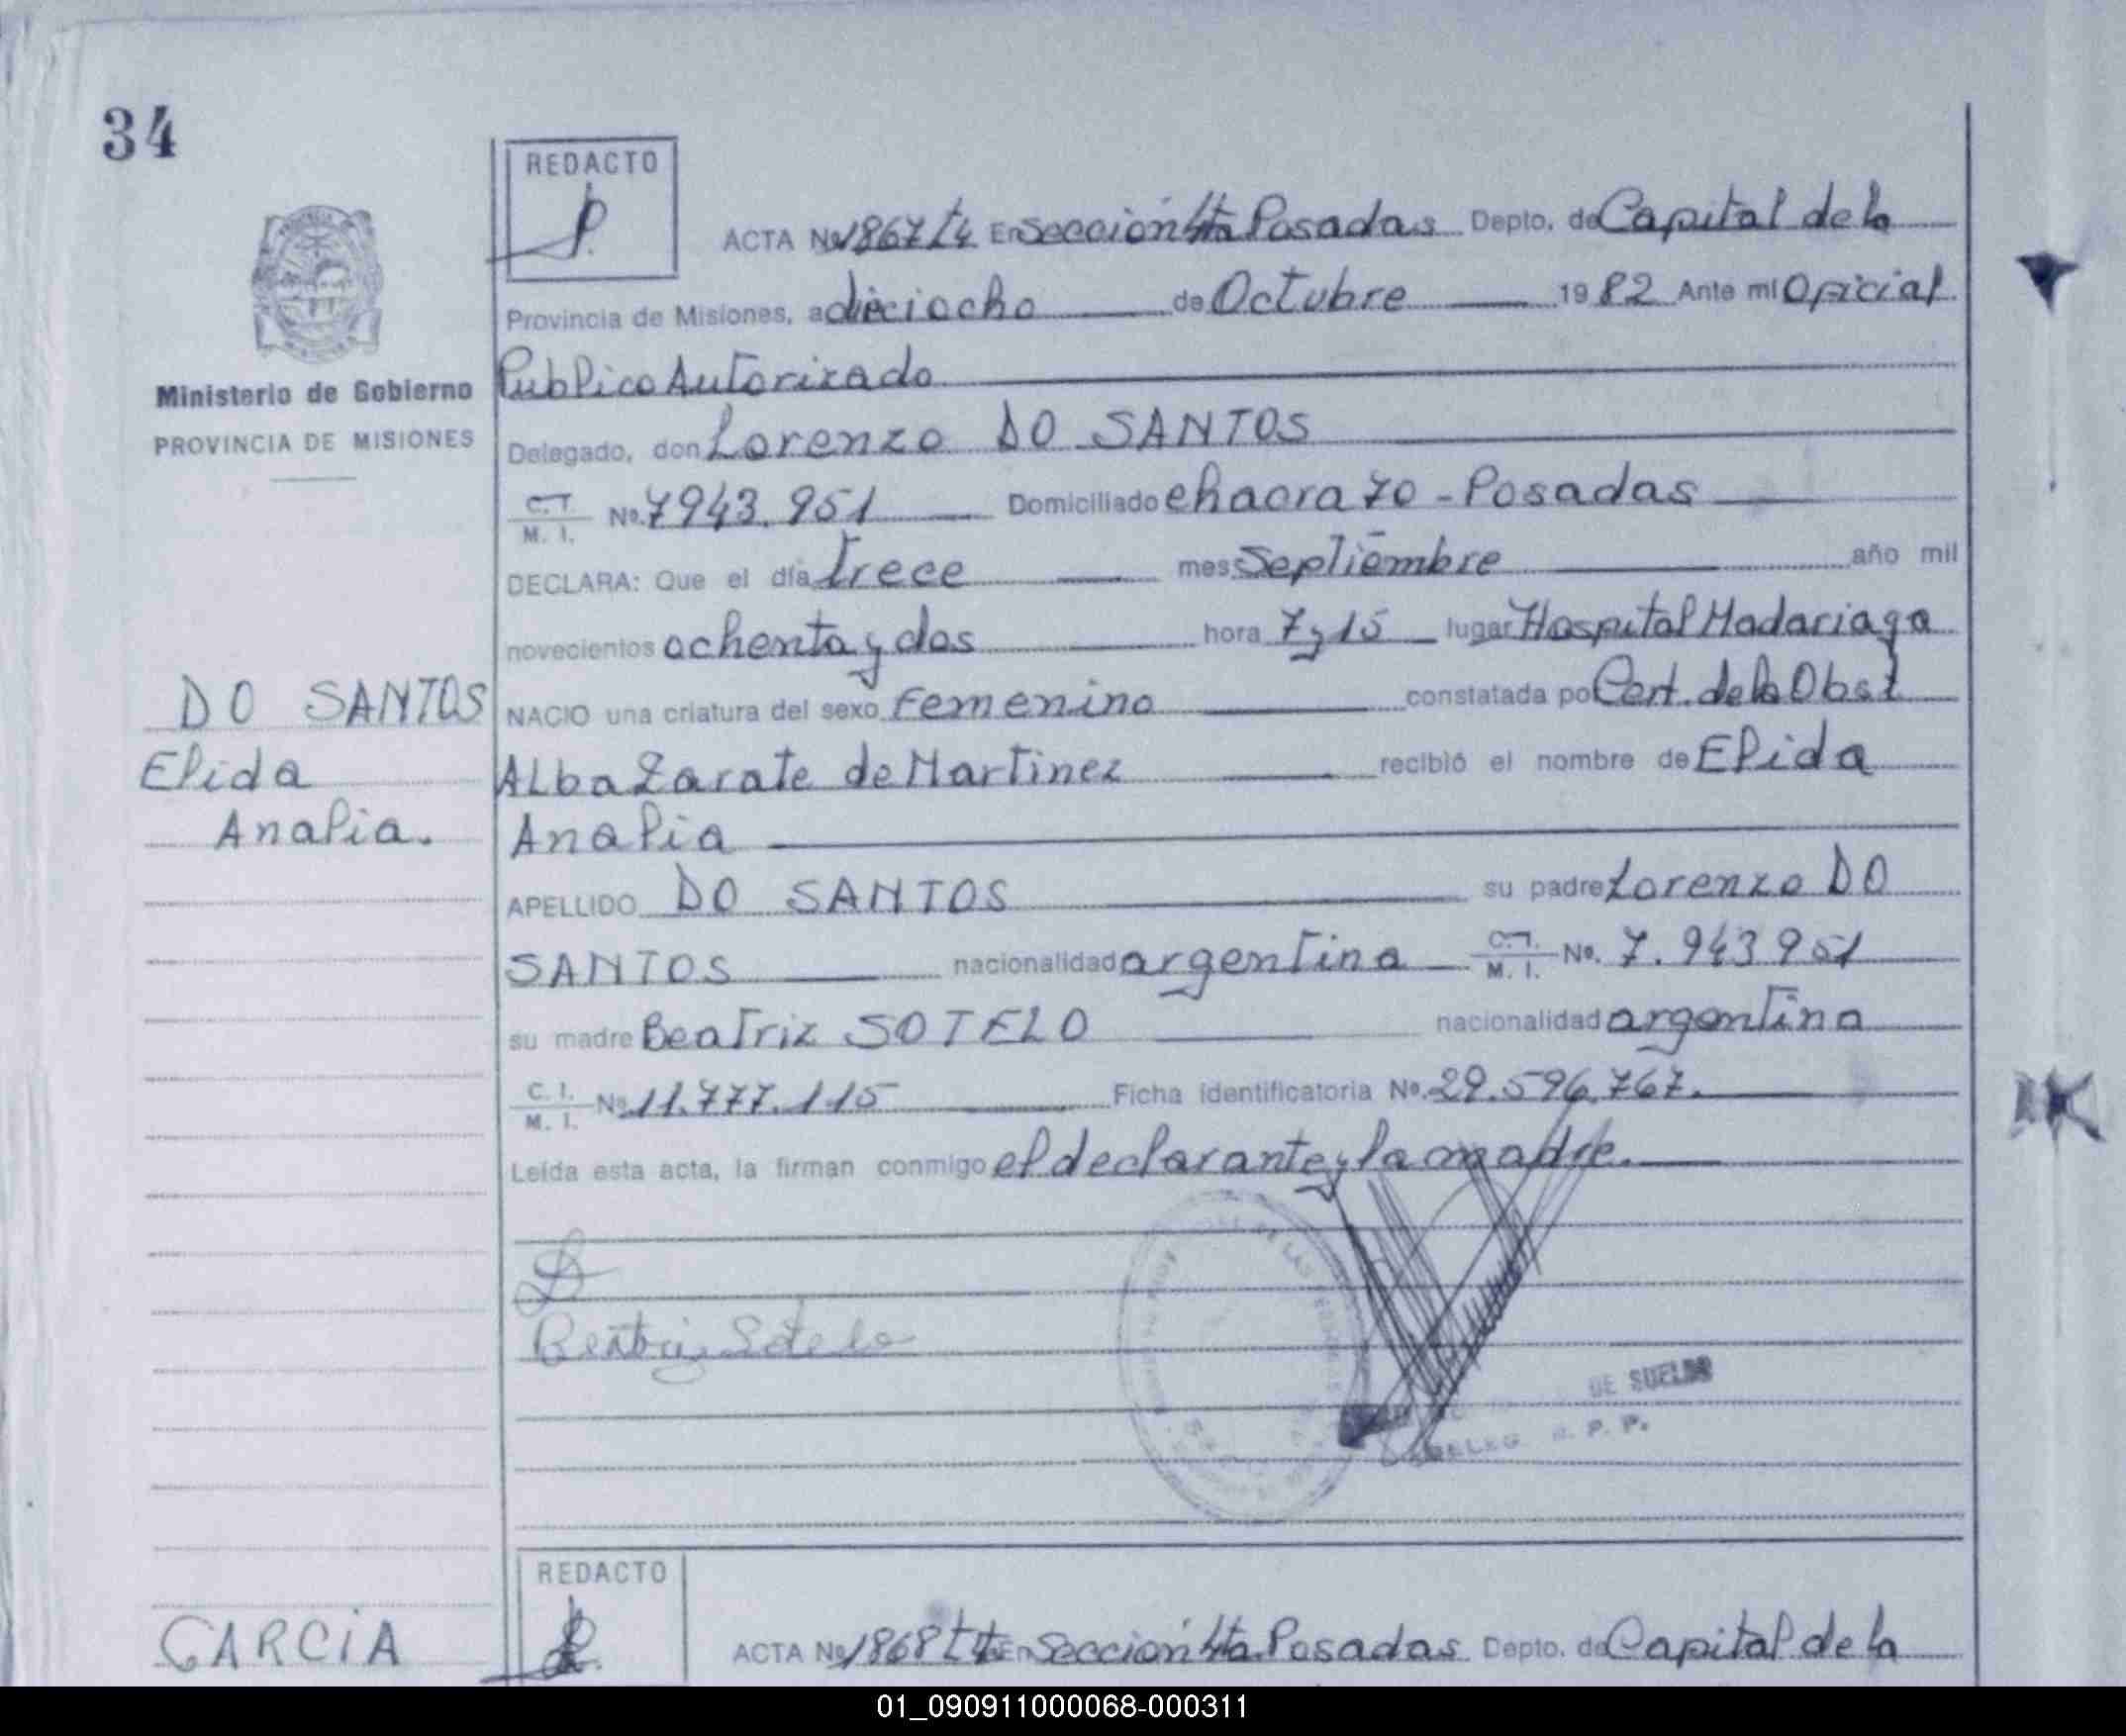 34
REDACTO
ACTA Nº 1867 t4 En Sección 4ta Posadas Depto. de Capital de la
Provincia de Misiones, a dieciocho de Octubre 1982 Ante mí Oficial
Publico Autorizado
Ministerio de Gobierno
PROVINCIA DE MISIONES
Delegado, don Lorenzo DO SANTOS
C.I. M. I. Nº. 7943.951 Domiciliado chacra 70 - Posadas
DECLARA: Que el día trece mes Septiembre año mil
novecientos ochenta y dos hora 7,15 lugar Hospital Madariaga
DO SANTOS
Elida
Analia.
NACIO una criatura del sexo Femenino constatada po Cert. de la Obst
Alba Zarate de Martinez recibió el nombre de Elida
Analia
APELLIDO DO SANTOS su padre Lorenzo DO
SANTOS nacionalidad argentina C.I. M. I. Nº. 7.943951
su madre Beatriz SOTELO nacionalidad argentina
C. I. M. I. Nº 11.777.115 Ficha identificatoria Nº. 29.596.767.
Leída esta acta, la firman conmigo el declarante y la madre.
Beatriz Sotelo
DE LAS
DE SUELDO
DELEG R. P. P.
REDACTO
GARCIA
ACTA Nº 1868 t4 En Sección 4ta. Posadas Depto. de Capital de la
01_090911000068-000311